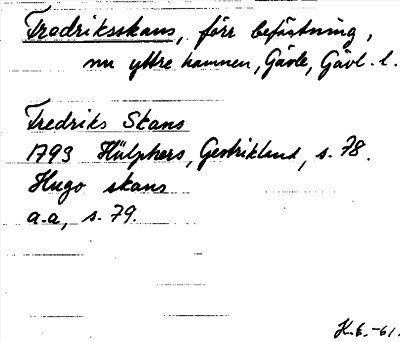 Fredriksskans, förr befästning,
nu yttre hamnen, Gävle, Gävl. l.
Fredriks Skans
1793 Hülphers, Gestrikland, s. 78.
Hugo skans
a.a, s. 79.
K.E.-61.